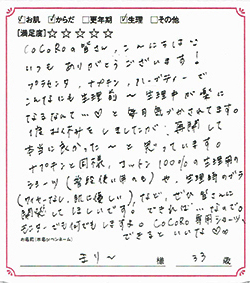 ☑お肌 ☑からだ □更年期 ☑生理 □その他
【満足度】☆☆☆☆☆
CoCoRoの皆さん、こんにちは
いつもありがとうございます！
プラセンタ、ナプキン、ハーブティーで
こんなにも生理前〜生理中が楽に
なるなんて♡と毎月気づかされてます。
1度お休みをしましたが、再開して
本当に良かった〜と思っています。
ナプキンと同様、コットン100%の生理用の
ショーツ(普段使い用のも)や、生理時のブラ
(ワイヤーなし、肌に優しい)など、ぜひ皆さんに
開発してほしいです。できれば、なので
モニターでも何でもしますよ。CoCoRo専用ショーツ、
できるといいな♡
お名前(本名orペンネーム)
まりー 様 33 歳